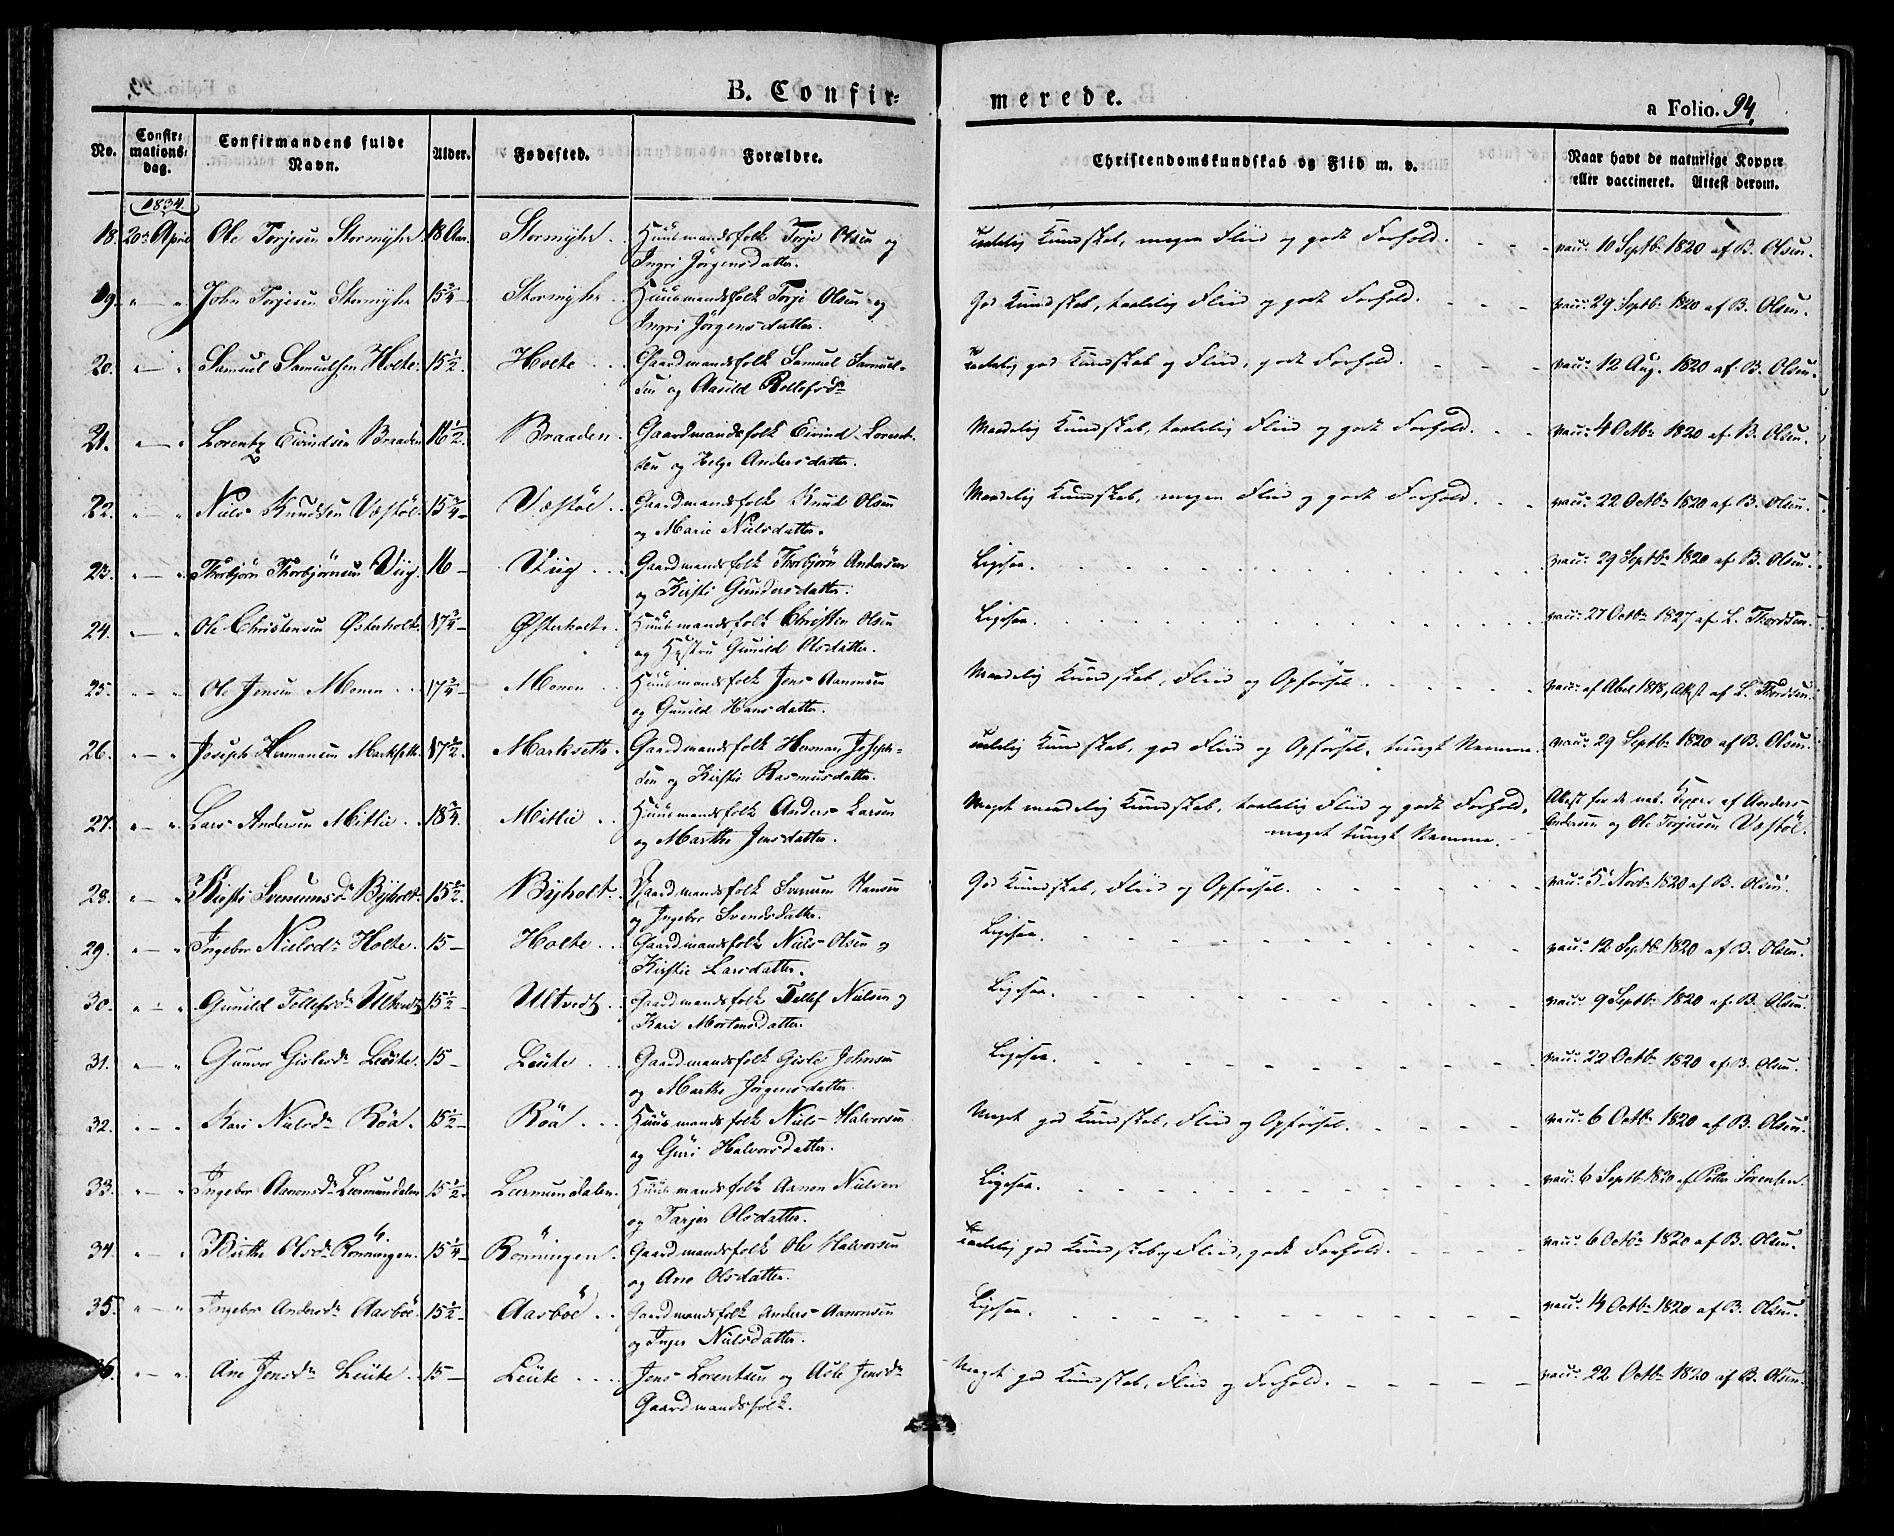 B. Confir-
merede.
a Folio. 94.
No.
Confir-
mations-
dag.
Confirmandens fulde
Navn.
Alder.
Fødested.
Forældre.
Christendomskundskab og Flid m. v.
Naar havt de naturlige Kopper
eller vaccineret. Attest derom.
1834
18. 20de April Ole Torjesen Stormyhr 18 Aar. Stormyhr Huusmandsfolk Torje Olsen og
Ingri Jörgensdatter.
taalelig Kundskab, megen Fliid og godt Forhold. vacc. 10 Septbr 1820 af B. Olsen.
19. " — " John Torjesen Stormyhr 15 3/4 Stormyhr Huusmandsfolk Torje Olsen og
Ingri Jörgensdatter.
God Kundskab, taalelig Fliid og godt Forhold. vacc. 29 Septbr 1820 af B. Olsen.
20. " — " Samuel Samuelsen Holte. 15 1/2. Holte Gaardmandsfolk Samuel Samuel-
sen og Aasild Rollefsdr
taalelig god Kundskab og Fliid, godt Forhold. vacc. 12 Aug. 1820 af B. Olsen.
21. " — " Lorentz Eivindsen Braaden 16 1/2. Braaden. Gaardmandsfolk Eivind Lorent-
sen og Helge Andersdatter.
Maadelig Kundskab, taalelig Fliid og godt Forhold. vacc. 4 Octbr 1820 af B. Olsen.
22. " — " Niels Knudsen Væstöl. 15 3/4 Væstöl Gaardmandsfolk Knud Olsen
og Marie Nielsdatter.
Maadelig Kundskab, megen Fliid og godt Forhold. vacc. 22 Octbr 1820 af B. Olsen.
23. " — " Thorbjörn Thorbjörnsen Viig. 16 — Viig Gaardmandsfolk Thorbjörn Andersen
og Kirsti Gundersdatter.
Ligesaa. vacc. 29 Septbr 1820 af B. Olsen.
24. " — " Ole Christensen Østerholt. 17 3/4 Østerholt. Huusmandsfolk Christen Olsen
og Hustru Gunild Olsdatter.
Ligesaa. vacc. 27 Octbr 1827 af L. Thordsen.
25. " — " Ole Jensen Monen 17 3/4 Monen Huusmandsfolk Jens Aanonsen
og Gunild Hansdatter.
Maadelig Kundskab, Fliid og Opförsel. vacc. af Abel 1818, Attest af L. Thordsen.
26. " — " Joseph Hermansen Marksett. 17 1/2. Marksett. Gaardmandsfolk Herman Joseph-
sen og Kirstie Rasmusdatter.
taalelig Kundskab, god Fliid og Opförsel, tungt Nemme. vacc. 29 Septbr 1820 af B. Olsen.
27. " — " Lars Andersen Mittie 18 3/4. Mittie Huusmandsfolk Anders Larsen
og Marthe Jensdatter.
Meget maadelig Kundskab, taalelig Fliid og godt Forhold,
meget tungt Nemme.
Attest for de nat. Kopper af Anders
Andersen og Ole Torjusen Væstöl.
28. " — " Kirsti Svenumsdr Byholt. 15 1/2. Byholt. Gaardmandsfolk Svenum Hansen
og Ingebor Svendsdatter.
God Kundskab, Fliid og Opförsel. vacc. 5 Novbr 1820 af B. Olsen.
29. " — " Ingebor Nielsdr Holte. 15 — Holte Gaardmandsfolk Niels Olsen og
Kirstie Larsdatter.
Ligesaa. vacc. 12 Septbr 1820 af B. Olsen.
30. " — " Gunild Tellefsdr Ultvedt 15 1/2 Ultvedt. Gaardmandsfolk Tellef Nielsen og
Kari Mortensdatter.
Ligesaa. vacc. 9 Septbr 1820 af B. Olsen.
31. " — " Gunvor Gislesdr Leüte. 15 — Leüte Gaardmandsfolk Gisle Johnsen
og Marthe Jörgensdatter.
Ligesaa. vacc. 22 Octbr 1820 af B. Olsen.
32. " — " Kari Nielsdr Röa. 15 1/2 Röa. Huusmandsfolk Niels Halvorsen
og Guri Halvorsdatter.
Meget god Kundskab, Fliid og Opförsel. vacc. 6 Octbr 1820 af B. Olsen.
33. " — " Ingebor Aanonsdr Leermundalen 15 1/2. Leermundalen. Huusmandsfolk Aanon Nielsen
og Tarjer Olsdatter.
Ligesaa. vacc. 6 Septbr 1820 af Petter Sörensen.
34. " — " Birthe Olsdr Rönningen. 15 1/4 Rönningen. Gaardmandsfolk Ole Halvorsen
og Ane Olsdatter.
taalelig god Kundskab og Fliid, godt Forhold. vacc. 6 Octbr 1820 af B. Olsen.
35. " — " Ingebor Andersdr Aasböe 15 1/2 Aasböe Gaardmandsfolk Anders Aanonsen
og Inger Nielsdatter.
Ligesaa. vacc. 14 Octbr 1820 af B. Olsen.
36. " — " Ane Jensdr Leüte. 15 — Leüte Jens Lorentsen og Aase Jensdr
Gaardmandsfolk.
Meget god Kundskab, Fliid og Forhold. vacc. 22 Octbr 1820 af B. Olsen.